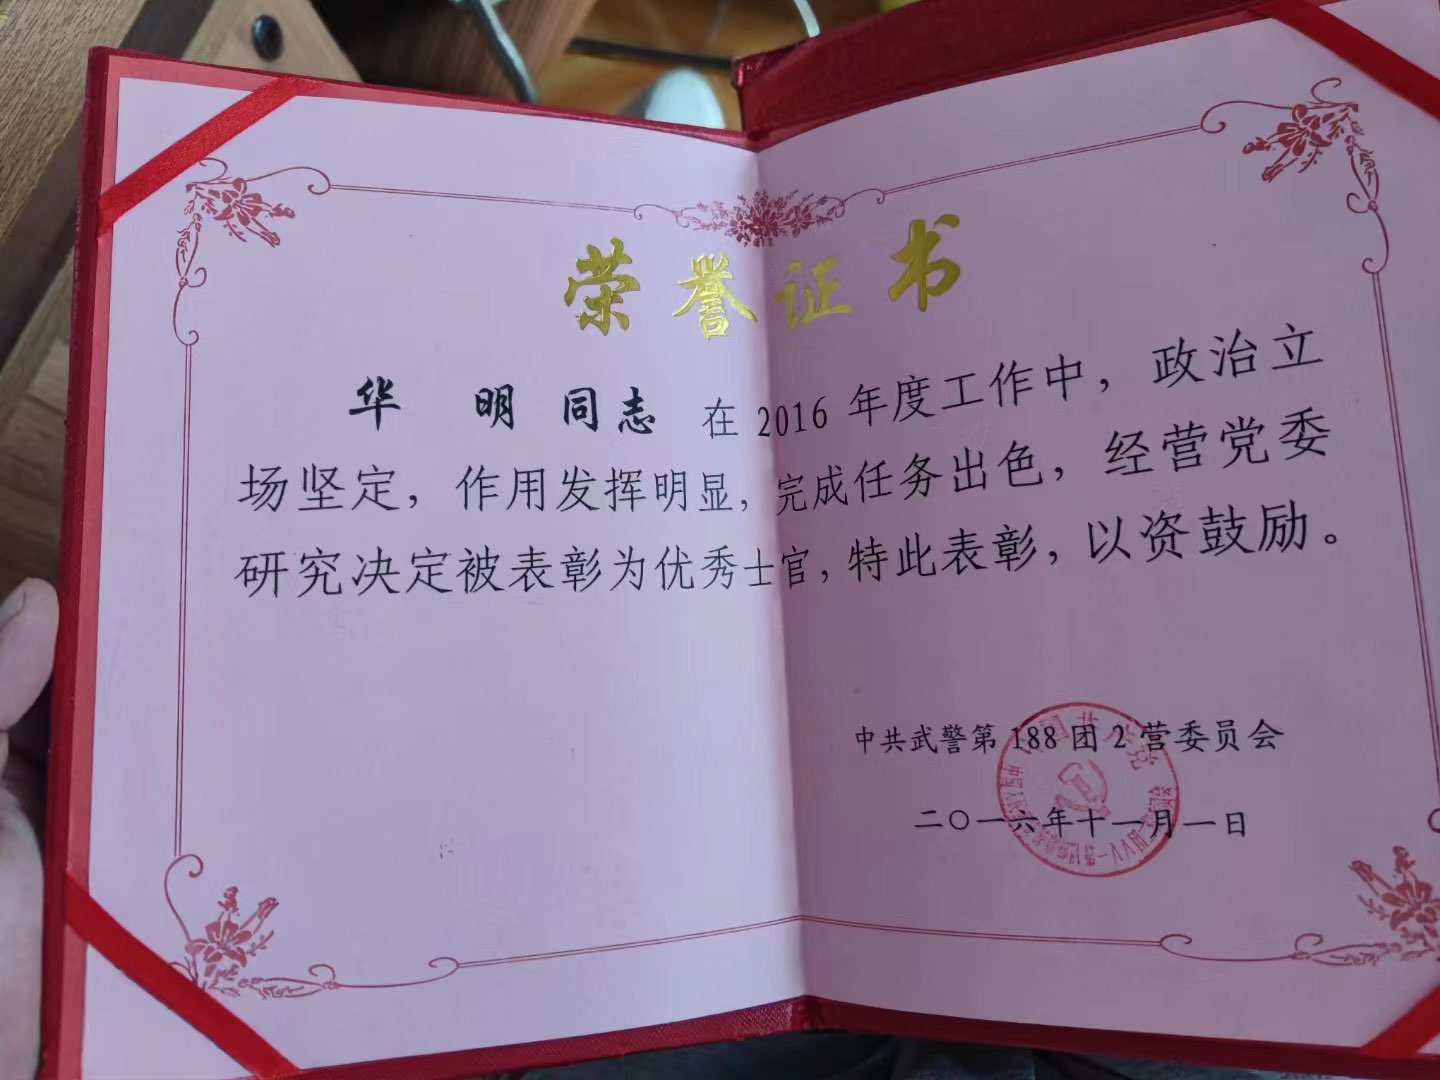 荣誉证书
华 明 同志 在 2016 年度工作中，政治立
场坚定，作用发挥明显，完成任务出色，经营党委
研究决定被表彰为优秀士官，特此表彰，以资鼓励。
中共武警第 188 团 2 营委员会
二〇一六年十一月一日